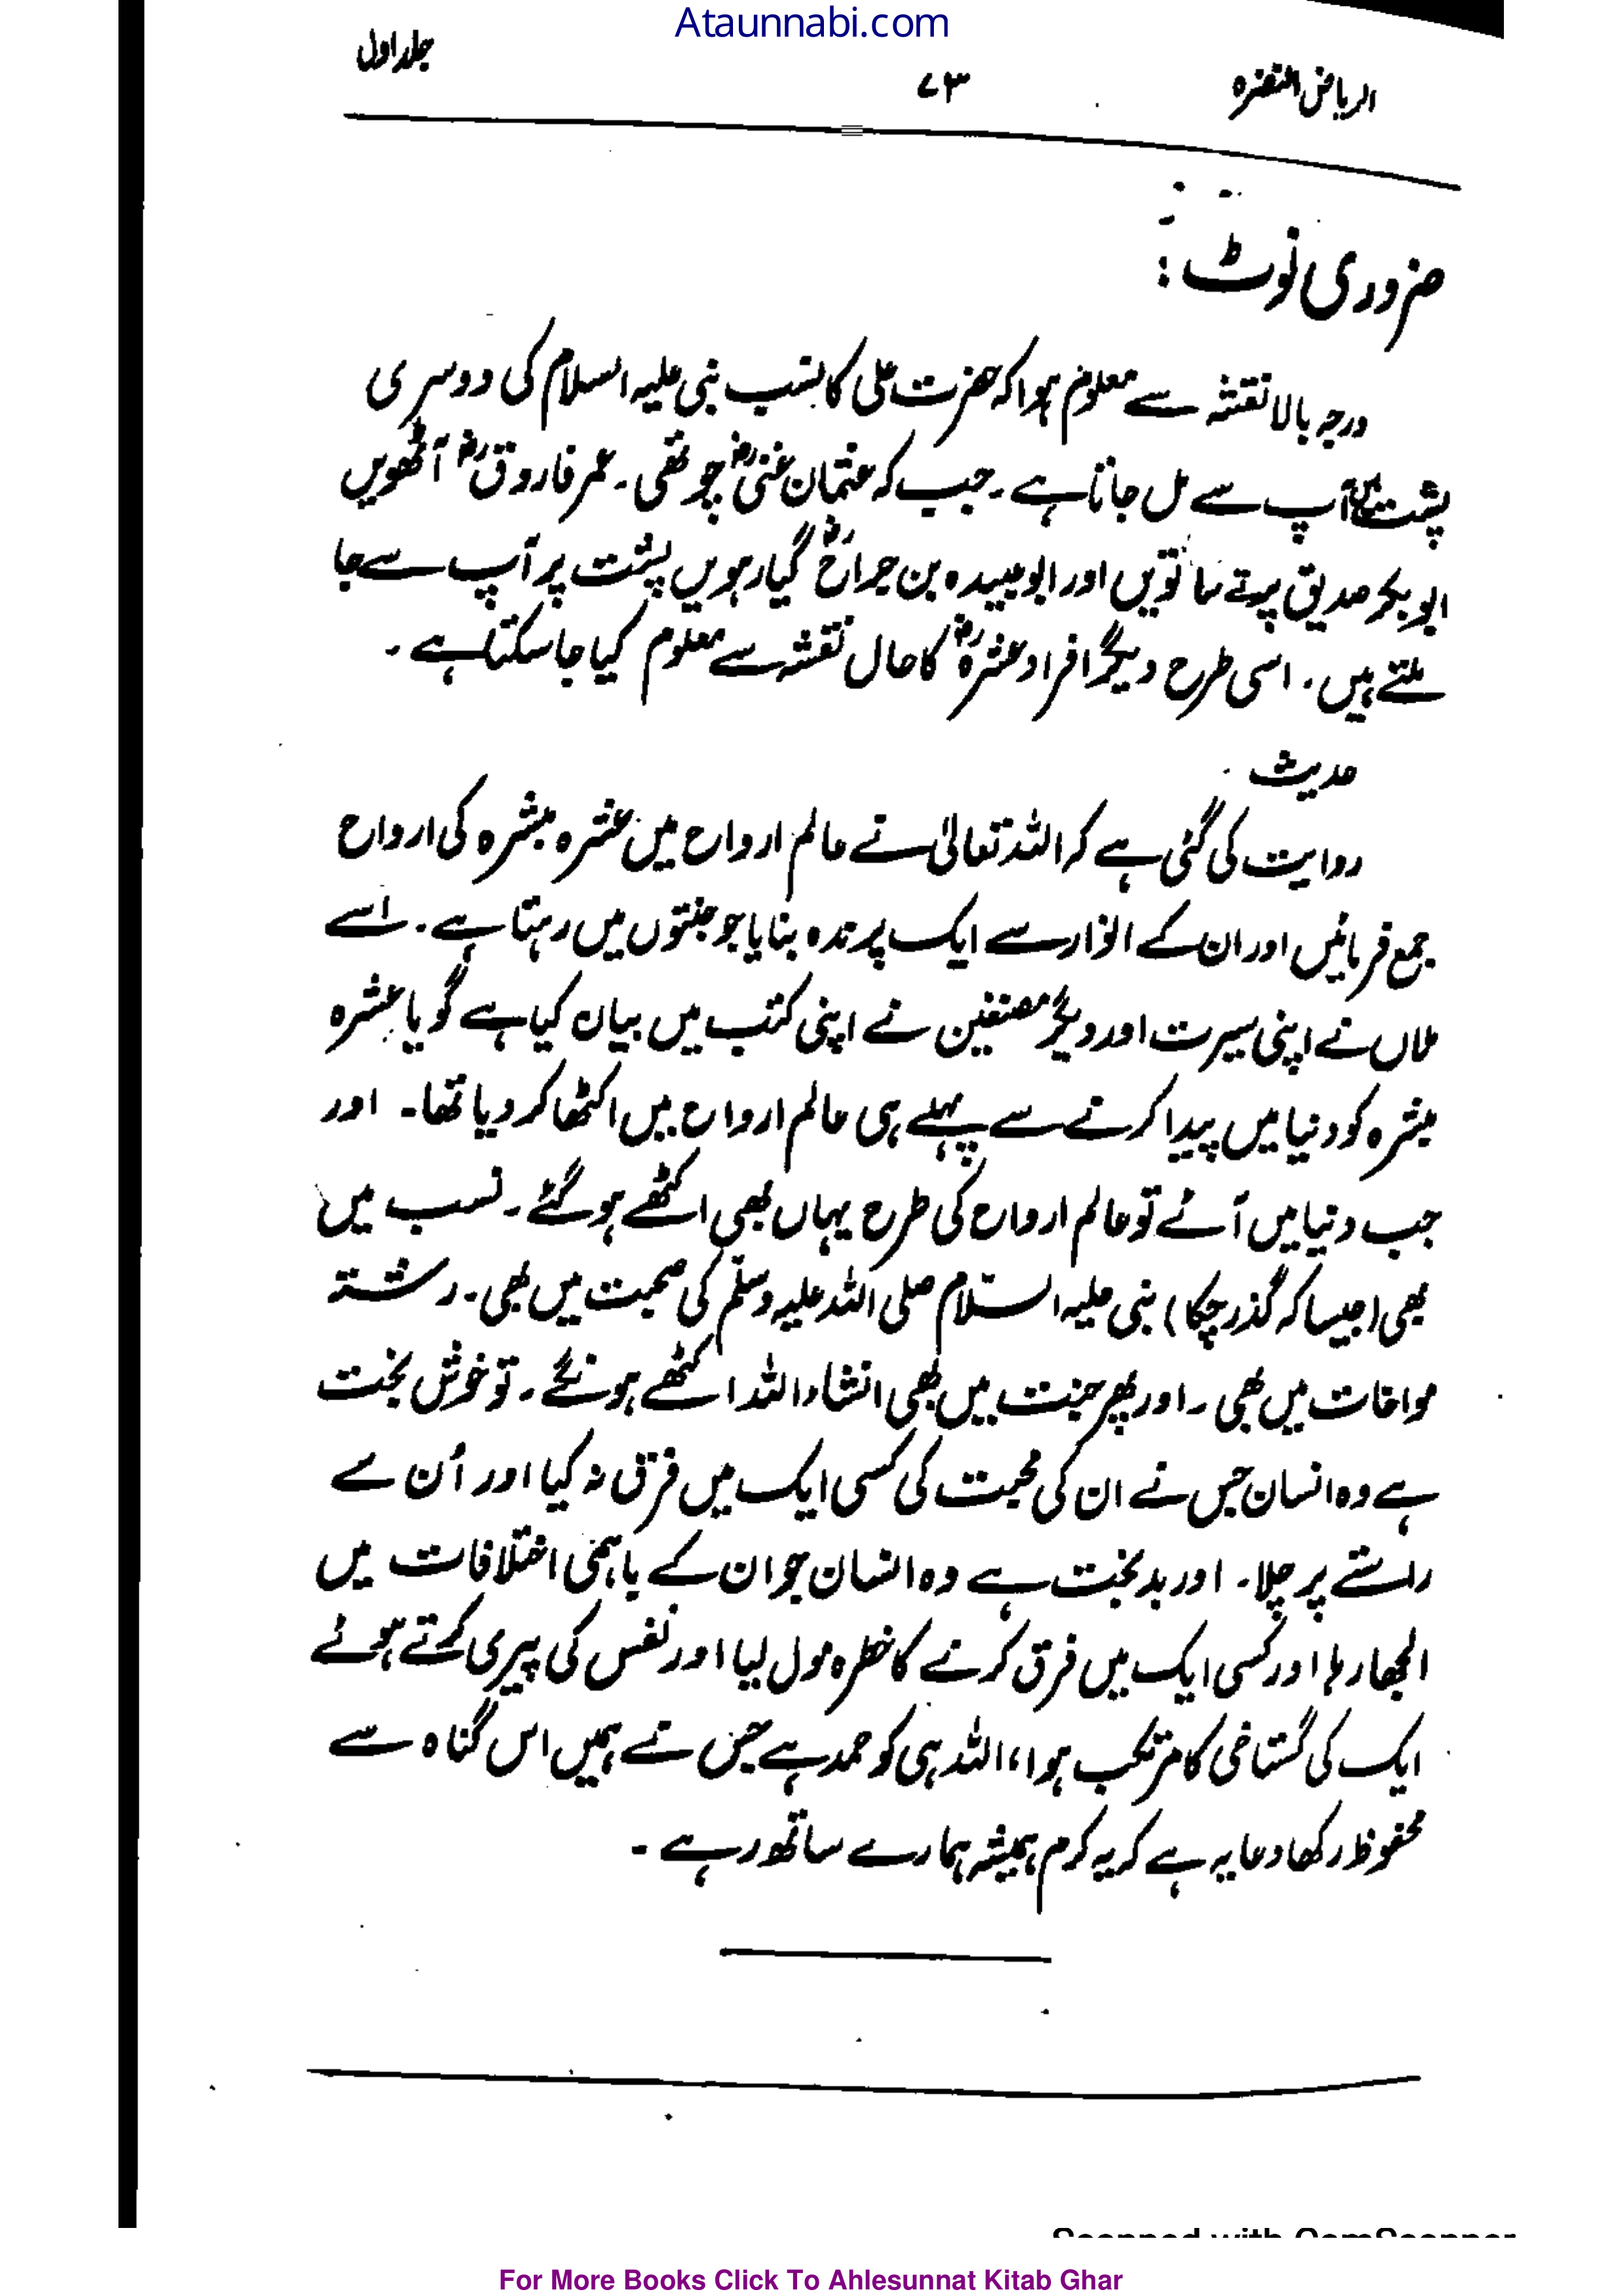 Ataunnabi.com
الریاض النضرہ ۷۳ جلد اول
ضروری نوٹ :
درجہ بالا نقشہ سے معلوم ہوا کہ حضرت علی کا نسب نبی علیہ السلام کی دوسری
پشت میں آپ سے مل جاتا ہے ۔ جب کہ عثمان غنیؓ چوتھی ۔ عمر فاروقؓ آٹھویں
ابوبکر صدیق پرتے ساتویں اور ابوعبیدہ بن جراحؓ گیارہویں پشت پر آپ سے جا
ملتے ہیں ۔ اسی طرح دیگر افراد عشرہؓ کا حال نقشہ سے معلوم کیا جا سکتا ہے ۔
حدیث
روایت کی گئی ہے کہ اللہ تعالیٰ نے عالم ارواح میں عشرہ مبشرہ کی ارواح
جمع فرمائیں اور ان کے انوار سے ایک پرندہ بنایا جو جنتوں میں رہتا ہے ۔ اسے
ملاں نے اپنی سیرت اور دیگر مصنفین نے اپنی کتب میں بیان کیا ہے گویا عشرہ
مبشرہ کو دنیا میں پیدا کرنے سے پہلے ہی عالم ارواح میں اکٹھا کر دیا تھا ۔ اور
جب دنیا میں آئے تو عالم ارواح کی طرح یہاں بھی اکٹھے ہو گئے ۔ نسب میں
بھی (جیسا کہ گذر چکا) نبی علیہ السلام صلی اللہ علیہ وسلم کی صحبت میں بھی ۔ رشتہ
مواخات میں بھی ۔ اور پھر جنت میں بھی انشاء اللہ اکٹھے ہونگے ۔ تو خوش بخت
ہے وہ انسان جس نے ان کی محبت کی کسی ایک میں فرق نہ کیا اور اُن کے
راستے پر چلا ۔ اور بدبخت ہے وہ انسان جو ان کے باہمی اختلافات میں
الجھا رہا اور کسی ایک میں فرق کرنے کا خطرہ مول لیا اور نفس کی پیری کرتے ہوئے
ایک کی گستاخی کا مرتکب ہوا ، اللہ ہی کو حمد ہے جس نے ہمیں اس گناہ سے
محفوظ رکھا دعا یہ ہے کہ یہ کرم ہمیشہ ہمارے ساتھ رہے ۔
Scanned with CamScanner
For More Books Click To Ahlesunnat Kitab Ghar